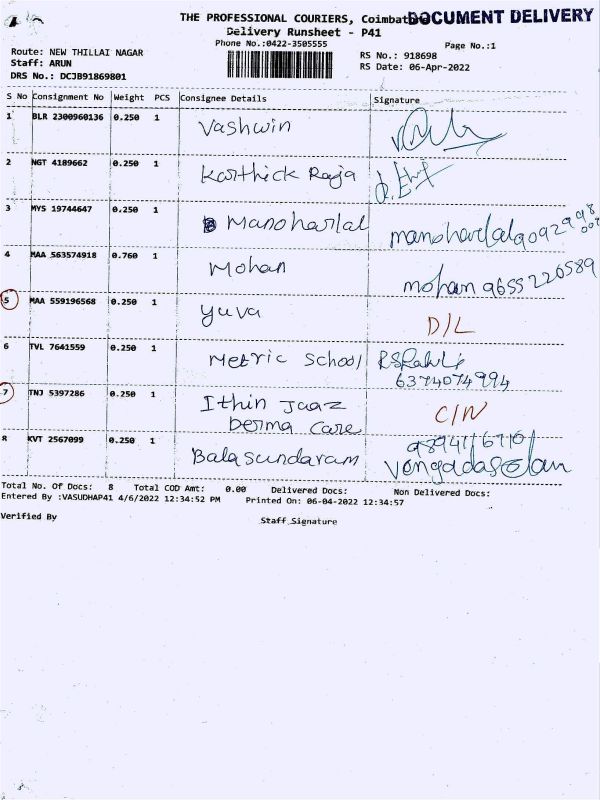 THE PROFESSIONAL COURIERS, Coimbatore
DOCUMENT DELIVERY
Delivery Runsheet - P41
Phone No.:0422-3505555
Page No.:1
Route: NEW THILLAI NAGAR
RS No.: 918698
Staff: ARUN
RS Date: 06-Apr-2022
DRS No.: DCJB91869801
S No Consignment No Weight PCS Consignee Details Signature
1 BLR 2300960136 0.250 1 Vashwin
2 NGT 4189662 0.250 1 Karthick Raja
3 MYS 19744647 0.250 1 Manoharlal manoharlal
4 MAA 563574918 0.760 1 Mohan mohan 9655226589
5 MAA 559196568 0.250 1 Yuva D/L
6 TVL 7641559 0.250 1 Metric School
6374074994
7 TNJ 5397286 0.250 1 Ithin Jaaz C/N
Derma Care
8 KVT 2567099 0.250 1 Balasundaram
Total No. Of Docs: 8 Total COD Amt: 0.00 Delivered Docs: Non Delivered Docs:
Entered By :VASUDHAP41 4/6/2022 12:34:52 PM Printed On: 06-04-2022 12:34:57
Verified By Staff Signature